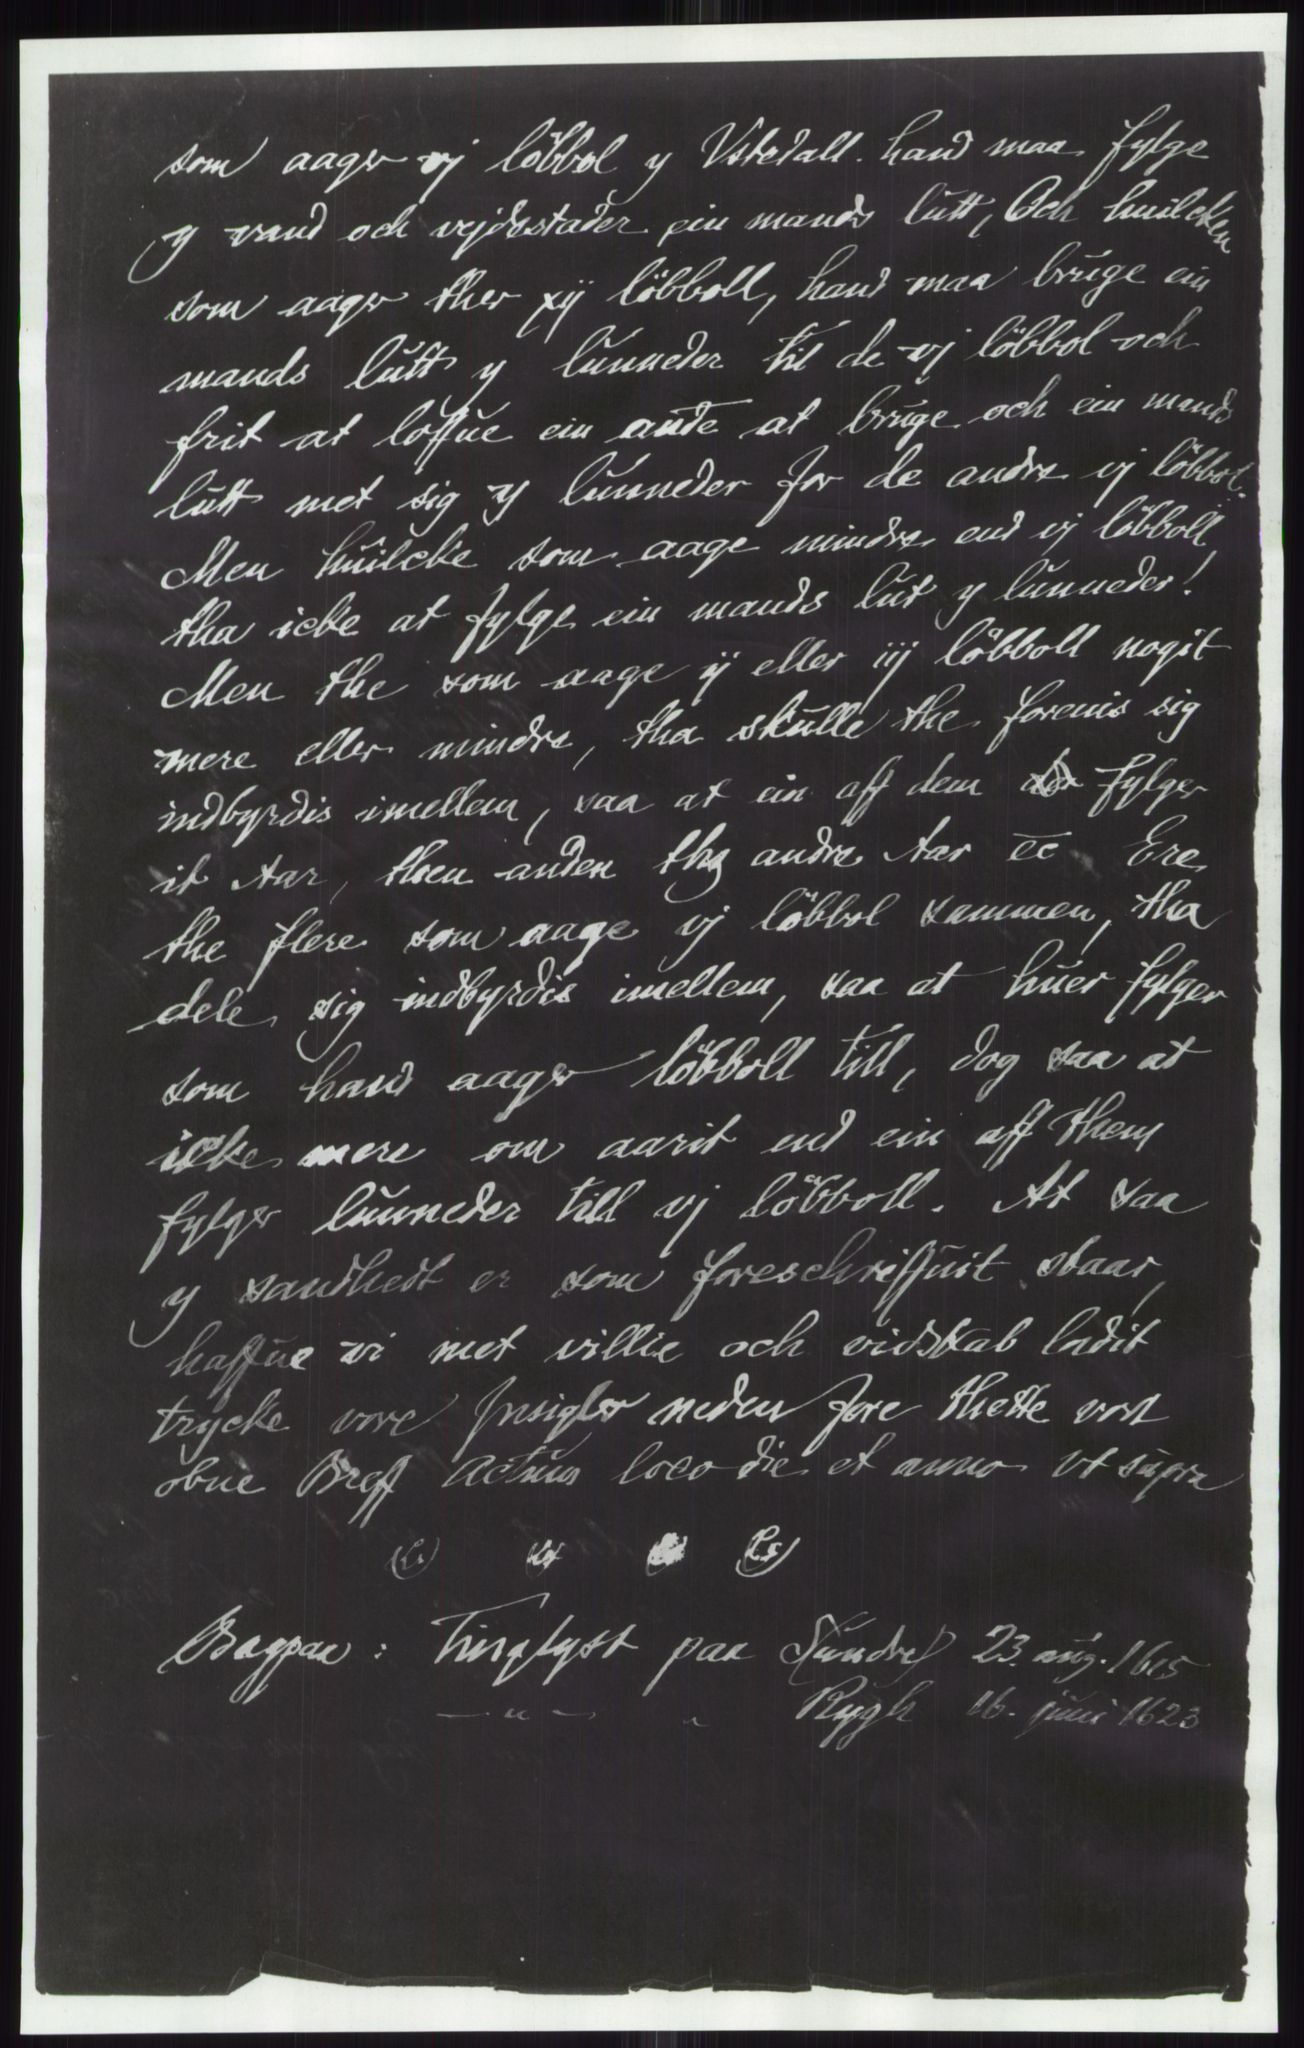 som aager vj löbbol y Vstedall hand maa fylge
y vand och vejdestader ein mands lutt, Och huilcken
som aager ther xij löbboll, hand maa bruge ein
mands lutt y lunneder til de vj löbbol och
frit at loffue ein ande at bruge och ein mands
lutt met sig y lunneder for de andre vj löbbol.
Men huilcke som aage mindre end vj löbboll,
tha icke at fylge ein mands lut y lunneder!
Men the som aage ij eller iij löbboll nogit
mere eller mindre, tha skulle the forenis sig
indbyrdis imellem, saa at ein aff dem fylger
it Aar, then anden thz andre Aar etc Ere
the flere som aage vj löbbol sammen, tha
dele sig indbyrdis imellem, saa at huer fylger
som hand aager löbboll till, dog saa at
icke mere om aarit end ein aff them
fylger lunneder till vj löbboll. At saa
y sandhedt er som foreschriffuit staar,
haffue vi met villie och vidskab ladit
trycke vore Insigler neden fore thette vort
obne Breff Actum loco die et anno vt supra
(Ls) (Ls) (Ls) (Ls)
Bagpaa: Tinglyst paa Sundre 23. aug. 1615
—"— " Rygh 16. juni 1623